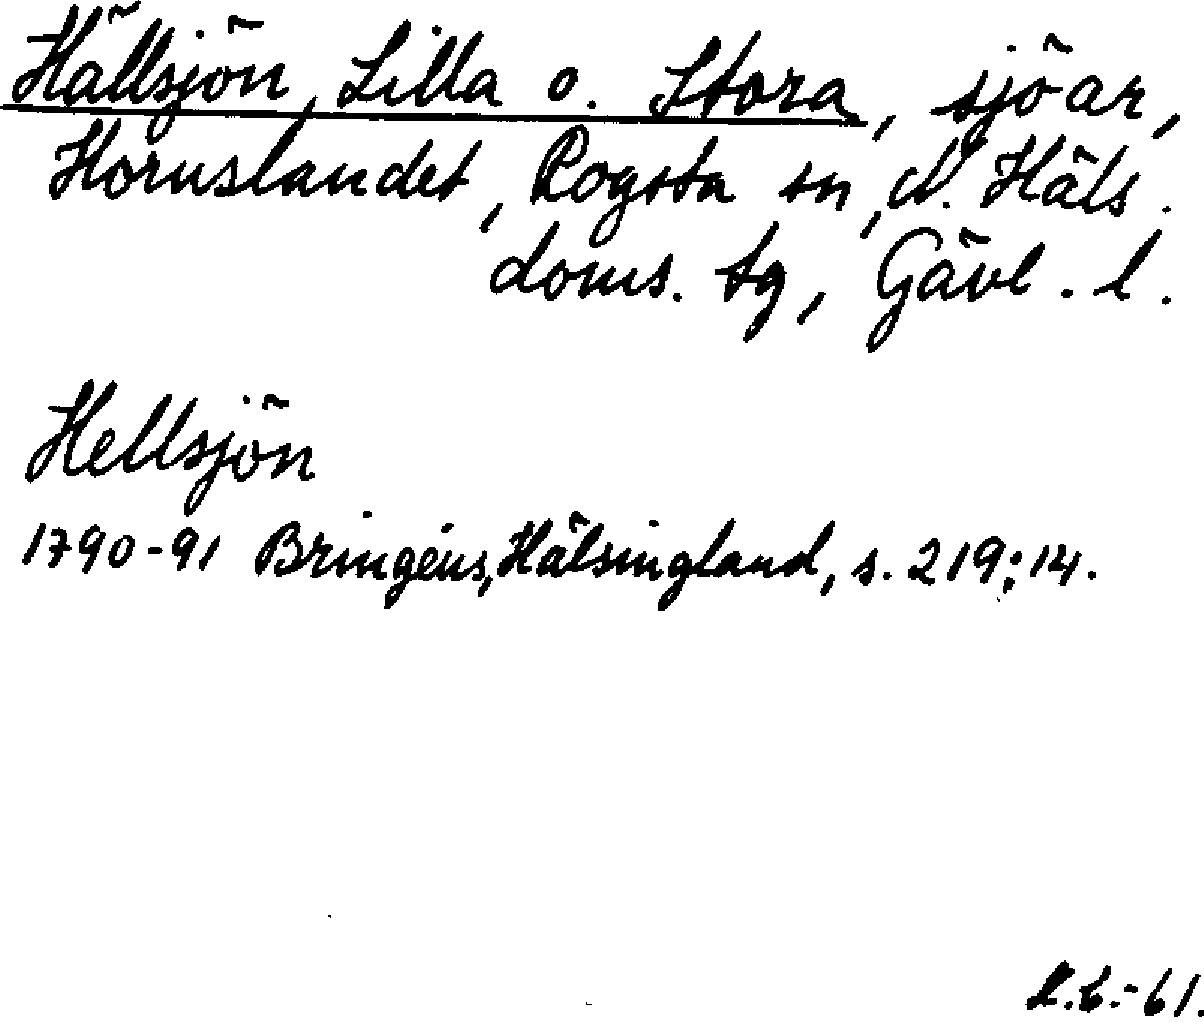 Hällsjön, Lilla o. Stora, sjöar,
Hornslandet, Rogsta sn, N. Häls.
doms. tg, Gävl. l.
Hellsjön
1790-91 Bringéus, Hälsingland, s. 219:14.
-61.